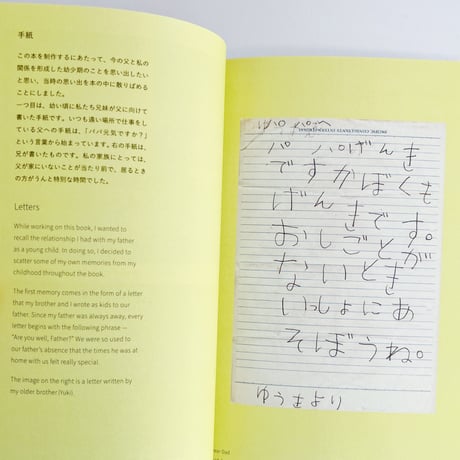 手紙
この本を制作するにあたって、今の父と私の
関係を形成した幼少期のことを思い出したい
と思い、当時の思い出を本の中に散りばめる
ことにしました。
一つ目は、幼い頃に私たち兄妹が父に向けて
書いた手紙です。いつも遠い場所で仕事をし
ている父への手紙は、「パパ元気ですか?」
という言葉から始まっています。右の手紙は、
兄が書いたものです。私の家族にとっては、
父が家にいないことが当たり前で、居るとき
の方がうんと特別な時間でした。
Letters
While working on this book, I wanted to
recall the relationship I had with my father
as a young child. In doing so, I decided to
scatter some of my own memories from my
childhood throughout the book.
The first memory comes in the form of a letter
that my brother and I wrote as kids to our
father. Since my father was always away, every
letter begins with the following phrase –
“Are you well, Father?” We were so used to
our father’s absence that the times he was at
home with us felt really special.
The image on the right is a letter written by
my older brother(Yuki).
PACIFIC CONSULTANTS INTERNATIONAL
パパへ
パパげんき
ですかぼくも
げんきです。
おしごとが
ないとき
いっしょにあ
そぼうね。
ゆうきより
Dad